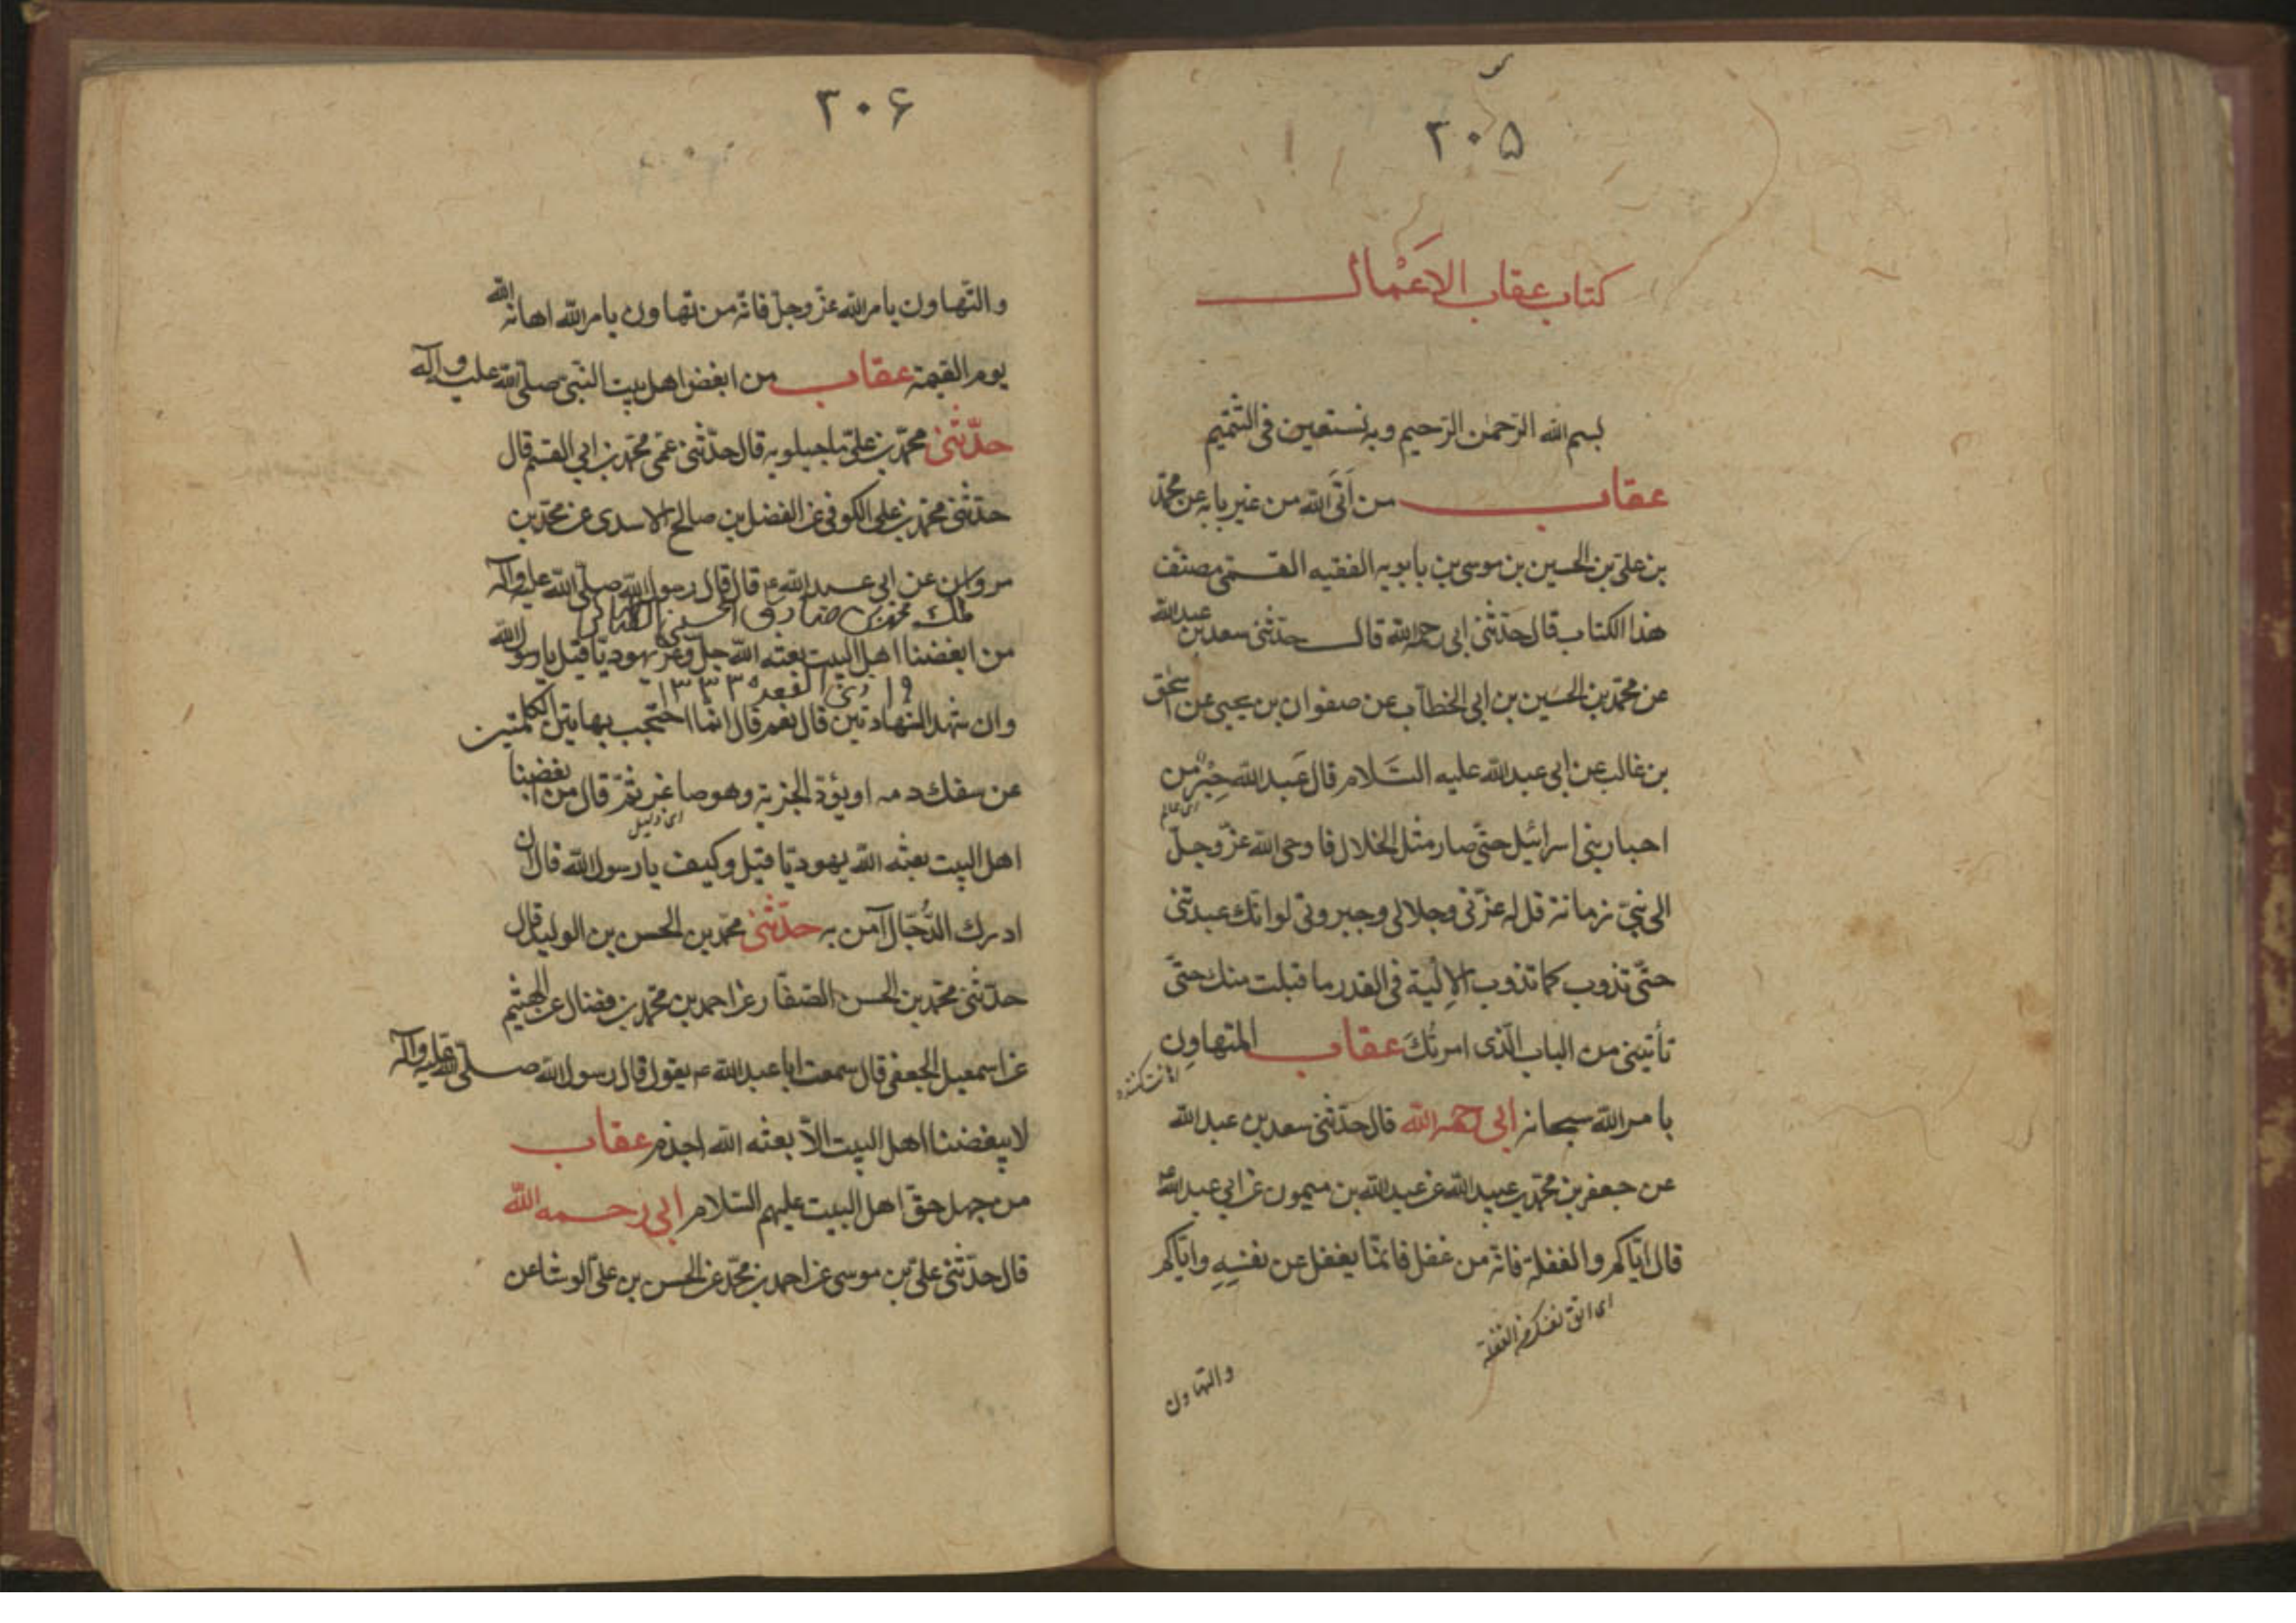 ۲۰۵
كتاب عقاب الاَعْمال
بسم الله الرّحمن الرّحيم وبه نستعين فى التّتميم
عقاب من اَتَى الله من غير بابه عن محمّد
بن علىّ بن الحسين بن موسى بن بابويه الفقيه القمّى مصنّف
هذا الكتاب قال حدّثنى ابى رحمه الله قال حدّثنى سعد بن عبد الله
عن محمّد بن الحسين بن ابى الخطاب عن صفوان بن يحيى عن اسحٰق
بن غالب عن ابى عبد الله عليه السّلام قال عَبد اللهَ حِبْرٌ من
اى عالم
احبار بنى اسرائيل حتّى صار مثل الخلال فاوحى الله عزّ وجلّ
الى نبىّ زمانه قل له عزّتى وجلالى وجبروتى لو انّك عبدتنى
حتّى تذوب كما تذوب الاِلْية فى القدر ما قبلت منك حتّى
تأتينى من الباب الّذى امرتُكَ عقاب المتهاوِن
اهانت كننده
بامر الله سبحانه ابى رحمه الله قال حدّثنى سعد بن عبد الله
عن جعفر بن محمّد بن عبيد الله عن عبد الله بن ميمون عن ابى عبد الله ع
قال ايّاكم والغفلة فانّه من غفل فانّما يغفل عن نفسِهِ وايّاكم
اى اتق نفسكم من الغفلة
والتهاون
۲۰۶
والتّهاون بامر الله عزّ وجلّ فانّه من تهاون بامر الله اهانه الله
يوم القيٰمة عقاب من ابغض اهل بيت النّبىّ صلّى الله عليه وآله
حدّثنى محمّد بن علىّ ماجيلويه قال حدّثنى عمّى محمّد بن ابى القسم قال
حدّثنى محمّد بن على الكوفى عن الفضل بن صالح الاسدى عن محمّد بن
مروان عن ابى عبد الله ع قال قال رسول الله صلّى الله عليه وآله
ملك محمد بن صادق الحسينى
من ابغضنا اهل البيت بعثه الله جلّ وعزّ يهوديّا قيل يا رسول الله
۱۹ ذى القعده ۱۳۳۳
وان شهد الشهادتين قال نعم قال انّما احتجب بهاتين الكلمتين
عن سفك دمه او يؤدّ الجزية وهو صاغر ثمّ قال من ابغضنا
اى ذليل
اهل البيت بعثه الله يهوديّا قيل وكيف يا رسول الله قال ان
ادرك الدّجّال آمن به حدّثنى محمّد بن الحسن بن الوليد قال
حدّثنى محمّد بن الحسن الصّفّار عن احمد بن محمّد بن فضال عن الهثيم
عن اسمعيل الجعفى قال سمعت ابا عبد الله ع يقول قال رسول الله صلّى الله عليه وآله
لا يبغضنا اهل البيت الّا بعثه الله اجذم عقاب
من جهل حقّ اهل البيت عليهم السّلام ابى رحمه الله
قال حدّثنى علىّ بن موسى عن احمد بن محمّد عن الحسن بن علىّ الوشا عن